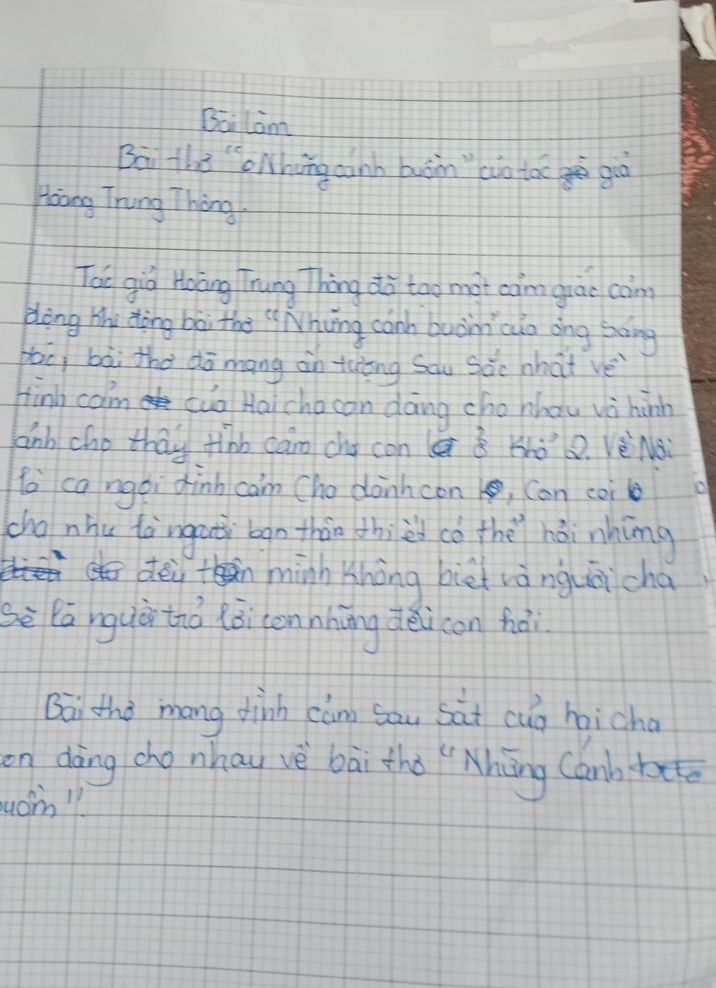 Bài làm
Bài thơ "Những cánh buồm" của tác giả
Hoàng Trung Thông.
Tác giả Hoàng Trung Thông đã tạo một cảm giác cảm
động khi đọng bài thơ "Những cánh buồm" của ông sáng
tác, bài thơ đã mang ấn tượng sau sắc nhất về
tình cảm của Hai cha con dàng cho nhau và hình
ảnh cho thấy tình cảm cha con ở khổ 2. Về Nội
ca ngợi tình cảm Cho dành con, Con coi
cha như là người bạn thân thiết có thể hỏi những
đều mình không biết và người cha
sẽ là người trả lời con những đều con hỏi.
Bài thơ mang tình cảm sau sắt của hai cha
on dàng cho nhau về bài thơ "Những Cánh
uồm".